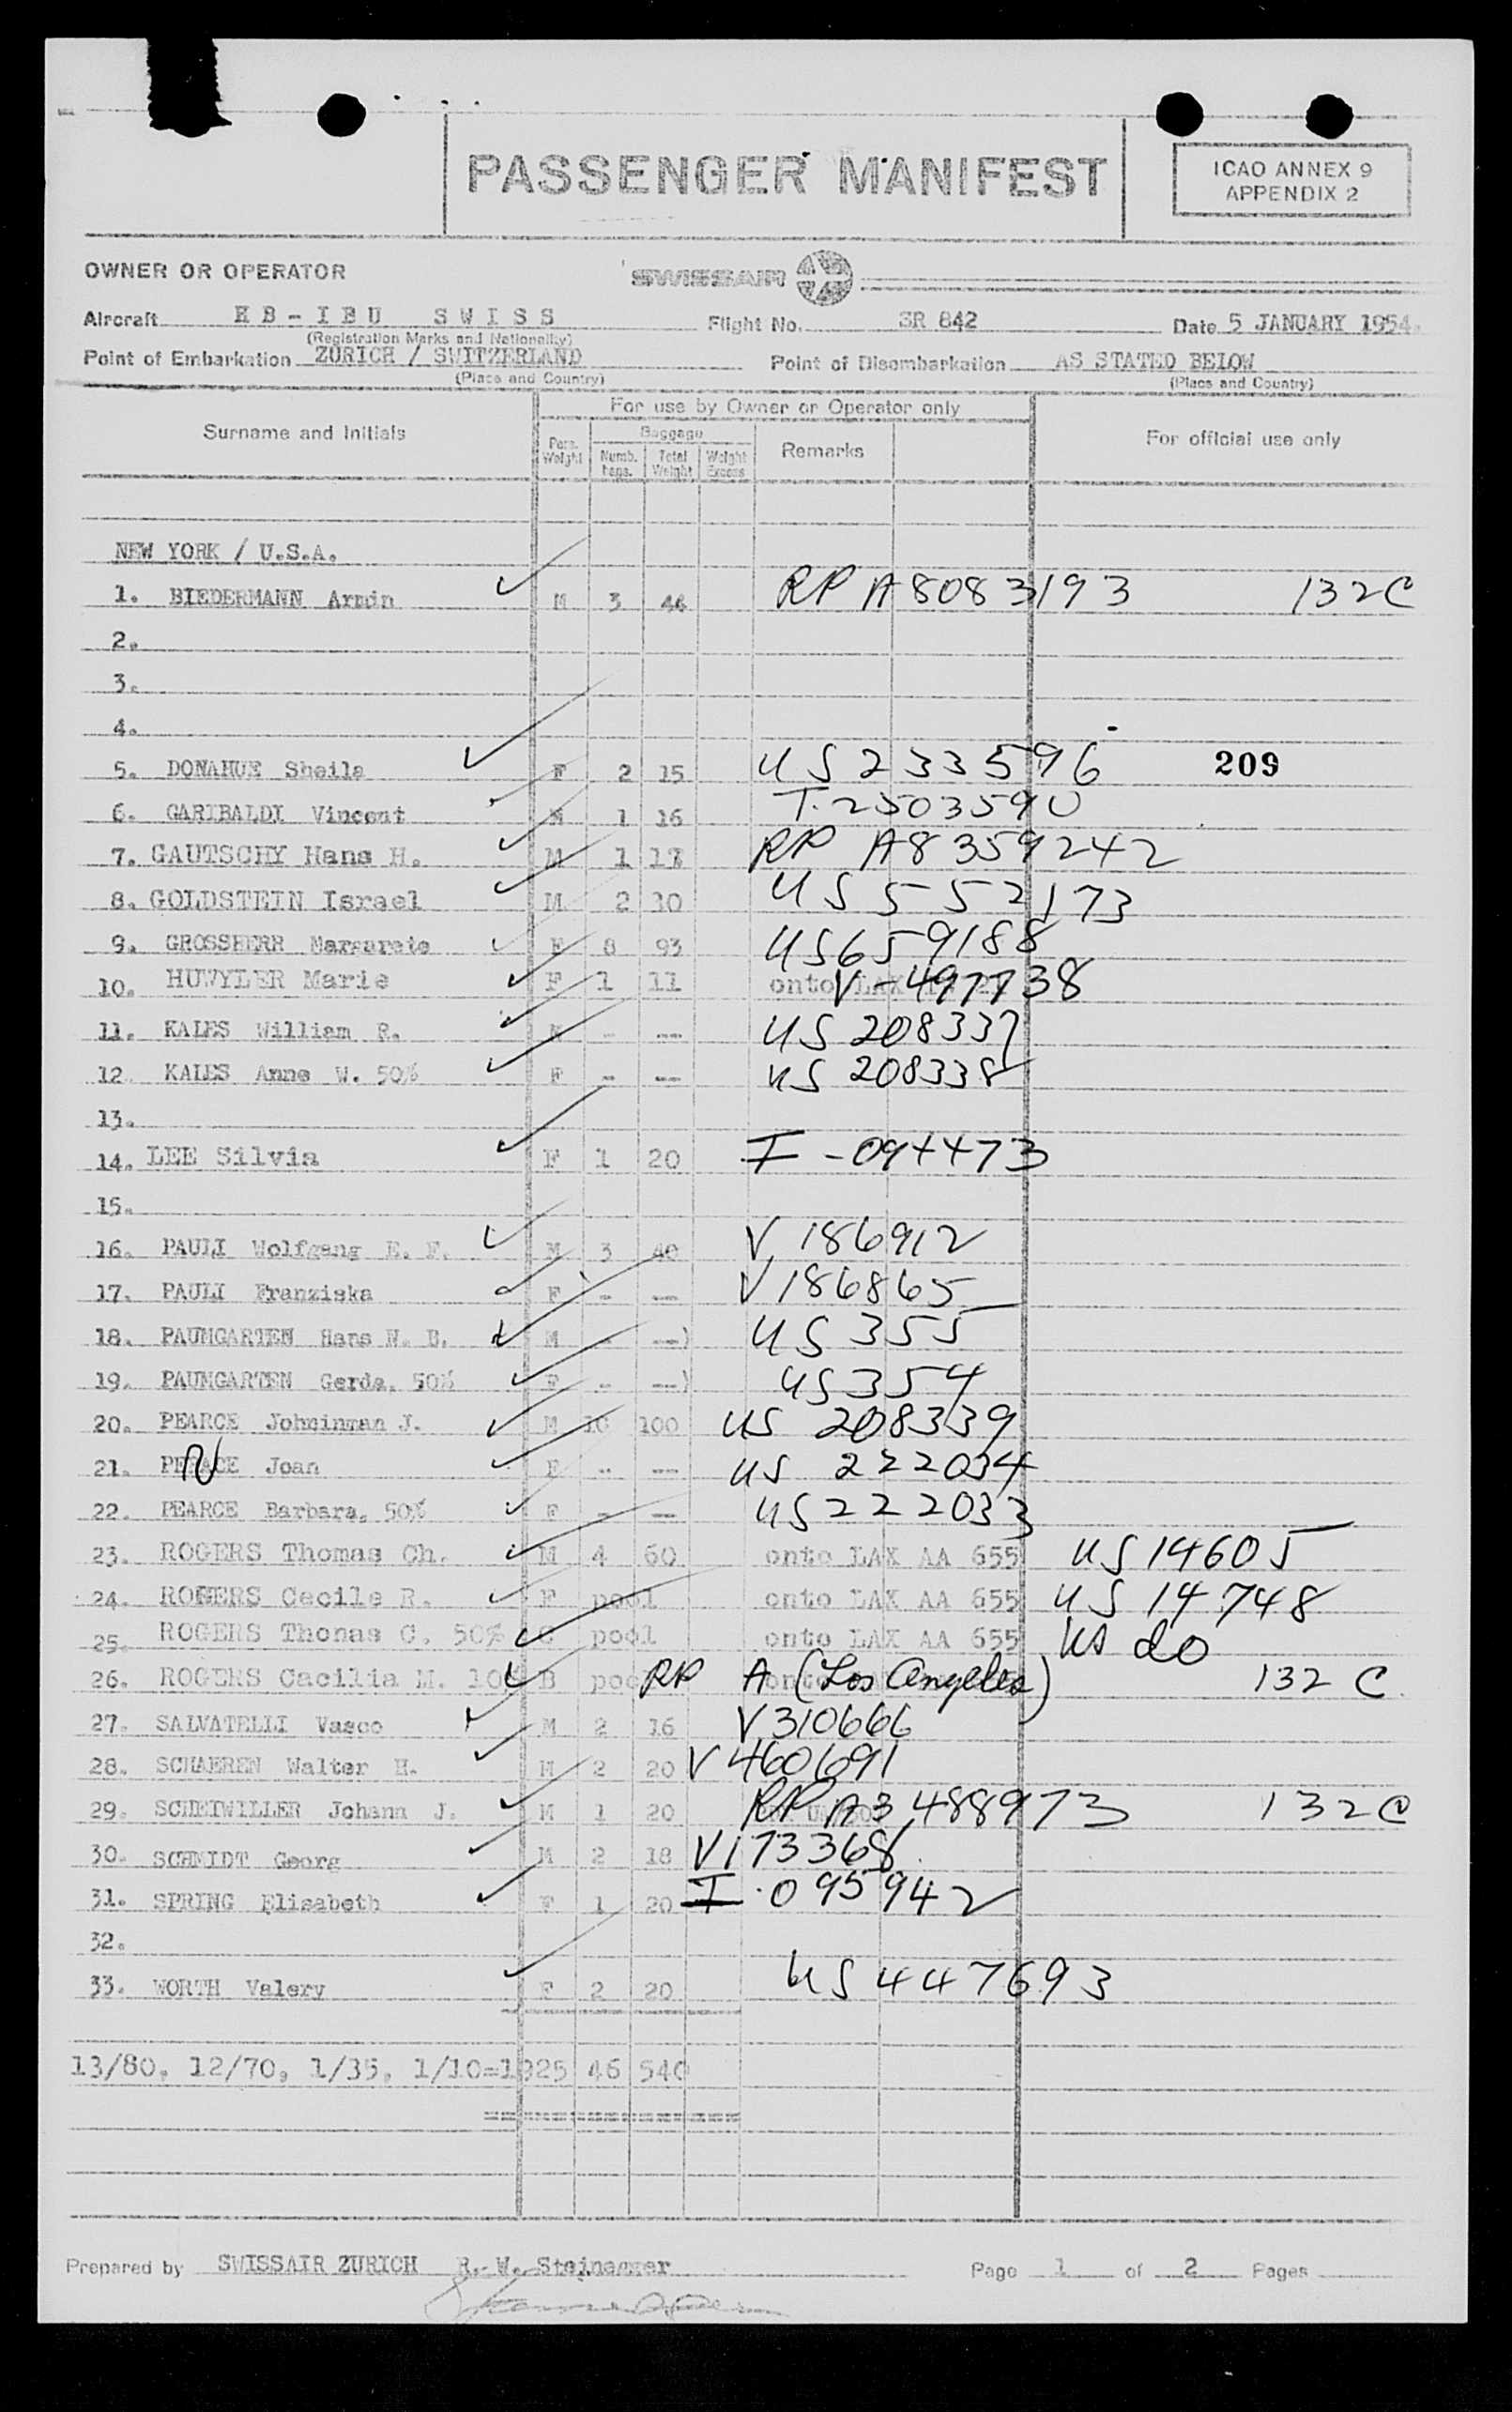 PASSENGER MANIFEST
ICAO ANNEX 9
APPENDIX 2
OWNER OR OPERATOR SWISSAIR
Aircraft HB-IBU SWISS Flight No. SR 842 Date 5 JANUARY 1954.
(Registration Marks and Nationality)
Point of Embarkation ZURICH / SWITZERLAND Point of Disembarkation AS STATED BELOW
(Place and Country) (Place and Country)
For use by Owner or Operator only
Surname and Initials Pers. Weight Baggage Numb. bags. Total Weight Weight Excess Remarks For official use only
NEW YORK / U.S.A.
1. BIEDERMANN Armin M 3 44 RP A8083193 132C
2.
3.
4.
5. DONAHUE Sheila F 2 15 US 233596 209
6. GARIBALDI Vincent M 1 16 T.2503590
7. GAUTSCHY Hans H. M 1 RP A8359242
8. GOLDSTEIN Israel M 2 30 US 552173
9. GROSSHERR Margarete F 8 93 US659188
10. HUWYLER Marie F 1 11 onto LAX V-497738
11. KALES William R. M - -- US 208337
12. KALES Anne W. 50% F - -- US 208338
13.
14. LEE Silvia F 1 20 I-094473
15.
16. PAULI Wolfgang E. F. M 3 40 V 186912
17. PAULI Franziska F - -- V186865
18. PAUMGARTEN Hans N. B. M - --) US 355
19. PAUMGARTEN Gerda. 50% F - --) US354
20. PEARCE Johninman J. M 10 100 US 208339
21. PERACE Joan F - -- US 222034
22. PEARCE Barbara. 50% F - -- US222033
23. ROGERS Thomas Ch. M 4 60 onto LAX AA 655 US 14605
24. ROGERS Cecile R. F pool onto LAX AA 655 US 14748
25. ROGERS Thomas C. 50% C pool onto LAX AA 655 US do
26. ROGERS Cacilia M. 10% B pool RP A (Los Angeles) 132 C.
27. SALVATELLI Vasco M 2 16 V310666
28. SCHAEREN Walter H. M 2 20 V 460691
29. SCHEIWILLER Johann J. M 1 20 RP A3488973 132C
30. SCHMIDT Georg M 2 18 V173368
31. SPRING Elisabeth F 1 20 I.095942
32.
33. WORTH Valery F 2 20 US 447693
13/80, 12/70, 1/35, 1/10=1925 46 540
Prepared by SWISSAIR ZURICH R. W. Page 1 of 2 Pages